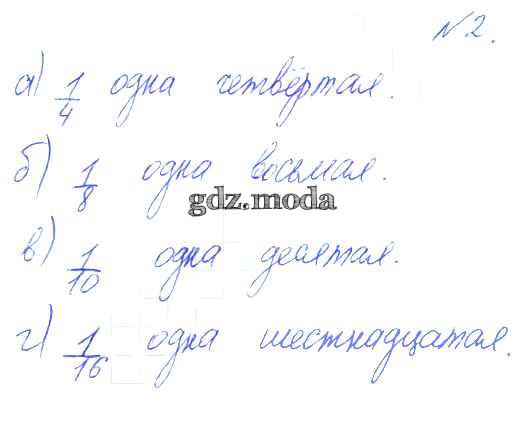 №2.
а) 1/4 одна четвёртая.
б) 1/8 одна восьмая.
gdz.moda
в) 1/10 одна десятая.
г) 1/16 одна шестнадцатая.